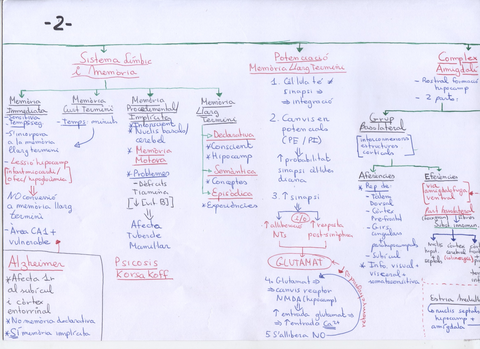 -2-
Sistema límbic
i memòria
Memòria
Immediata
- Sensitiva
- Temps seg
- S'incorpora
a la memòria
llarg termini
- Lessió hipocamp
NO conversió
a memòria llarg
termini
- Àrea CA1 +
vulnerable
Alzheimer
* Afecta 1r
al subícul
i córtex
entorrinal
* No memòria declarativa
* Sí memòria implícita
Memòria
Curt Termini
- Temps: minuts
Memòria
Procedimental/
Implícita
* Nuclis basals/
cerebel
* Memòria
Motora
* Problemes
- Dèficits
Tiamina
Afecta
Tubercle
Mamilar
Psicosis
Korsakoff
Memòria
Llarg
Termini
Declarativa
* Conscient
* Hipocamp
Semàntica
* Conceptes
Episòdica
* Experiències
Potenciació
Memòria Llarg Termini
1. Cèl·lula té
sinapsi ⇒
⇒ integració
2. Canvis en
potencials
(PE / PI)
↑ probabilitat
sinapsi cèl·lula
diana
3. ↑ sinapsi
↑ alliberació
NTs
↑ resposta
postsinàptica
GLUTAMAT
4. Glutamat ⇒
⇒ canvis receptor
NMDA (hipocamp)
↑ entrada glutamat ⇒
⇒ ↑ entrada Ca²⁺
5. S'allibera NO
Complex
Amígdala
- Rostral formació
hipocamp
- 2 parts:
Grup
Basolateral
Interconnexions
estructures
corticals
Aferències
* Rep de:
- Tàlem
Dorsal
- Còrtex
Prefrontal
- Girs
cingular
i
parahipocampals
- Subícul
* Info visual +
visceral +
somatosensitiva
Eferències
via
amigdalofuga
ventral
Estria terminal
hipocamp +
amígdala